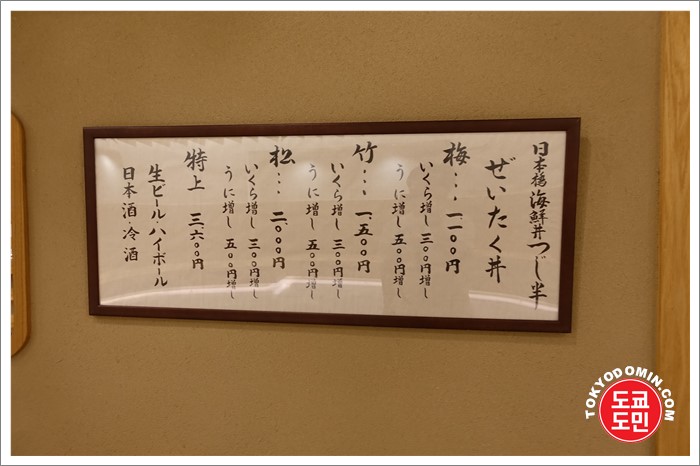 日本橋海鮮丼つじ半
ぜいたく丼
梅… 一、一〇〇円
いくら増し 三〇〇円増し
うに増し 五〇〇円増し
竹… 一、五〇〇円
いくら増し 三〇〇円増し
うに増し 五〇〇円増し
松… 二、〇〇〇円
いくら増し 三〇〇円増し
うに増し 五〇〇円増し
特上 三、六〇〇円
生ビール・ハイボール
日本酒・冷酒
TOKYODOMIN.COM
도쿄
도민